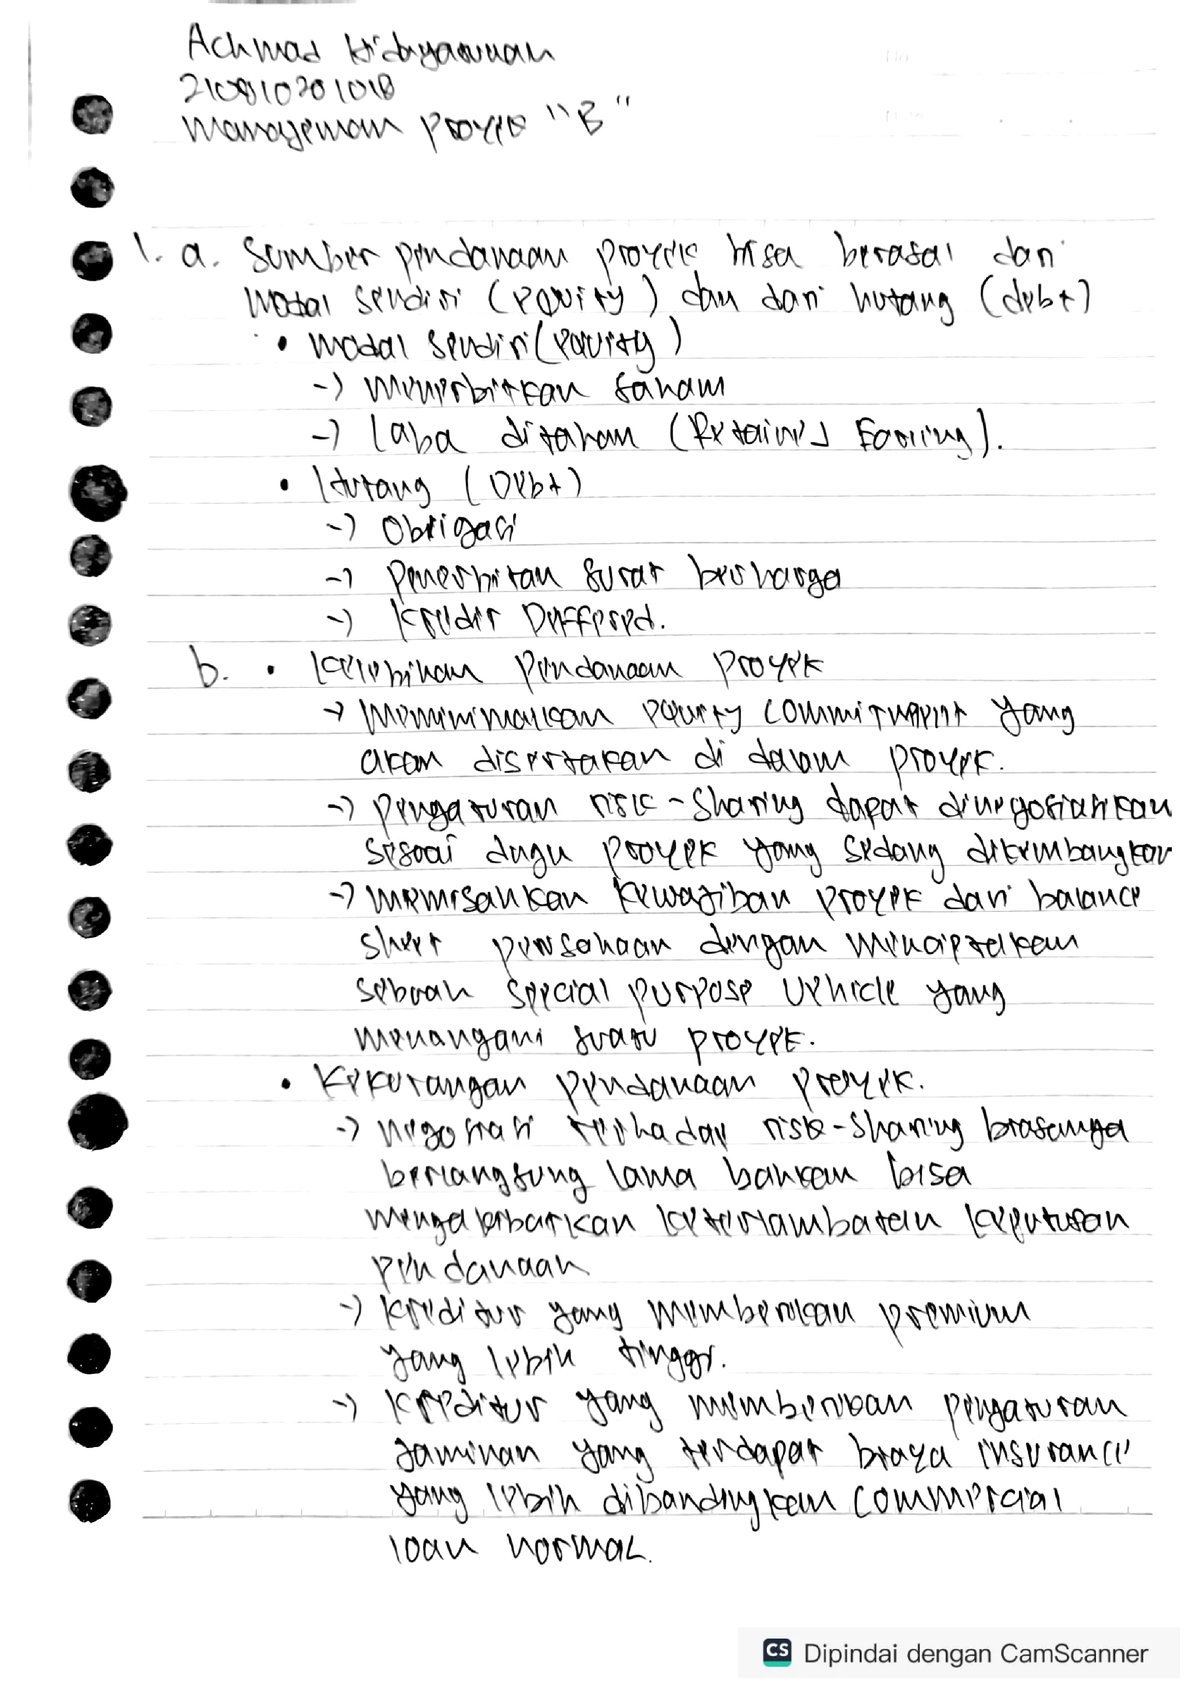 Achmad Hidayatullah
210810201018
Manajemen Proyek "B"
1. a. Sumber pendanaan proyek bisa berasal dari
modal sendiri (equity) dan dari hutang (debt)
• modal sendiri (equity)
-> Menerbitkan saham
-> Laba ditahan (Retained Earning).
• Hutang (Debt)
-> Obligasi
-> Penerbitan surat berharga
-> Kredit Deffered.
b. • Kelebihan pendanaan proyek
-> Meminimalkan equity commitment yang
akan disertakan di dalam proyek.
-> Pengaturan risk-sharing dapat dinegosiasikan
sesuai dngn proyek yang sedang dikembangkan
-> Memisahkan kewajiban proyek dari balance
sheet perusahaan dengan menciptakan
sebuah special purpose vehicle yang
menangani suatu proyek.
• Kekurangan pendanaan proyek.
-> negosiasi terhadap risk-sharing biasanya
berlangsung lama bahkan bisa
mengakibatkan keterlambatan keputusan
pendanaan
-> Kreditur yang memberikan premium
yang lebih tinggi.
-> Kreditur yang memberikan pengaturan
jaminan yang terdapat biaya insurance
yang lebih dibandingkan commercial
loan normal.
CS Dipindai dengan CamScanner